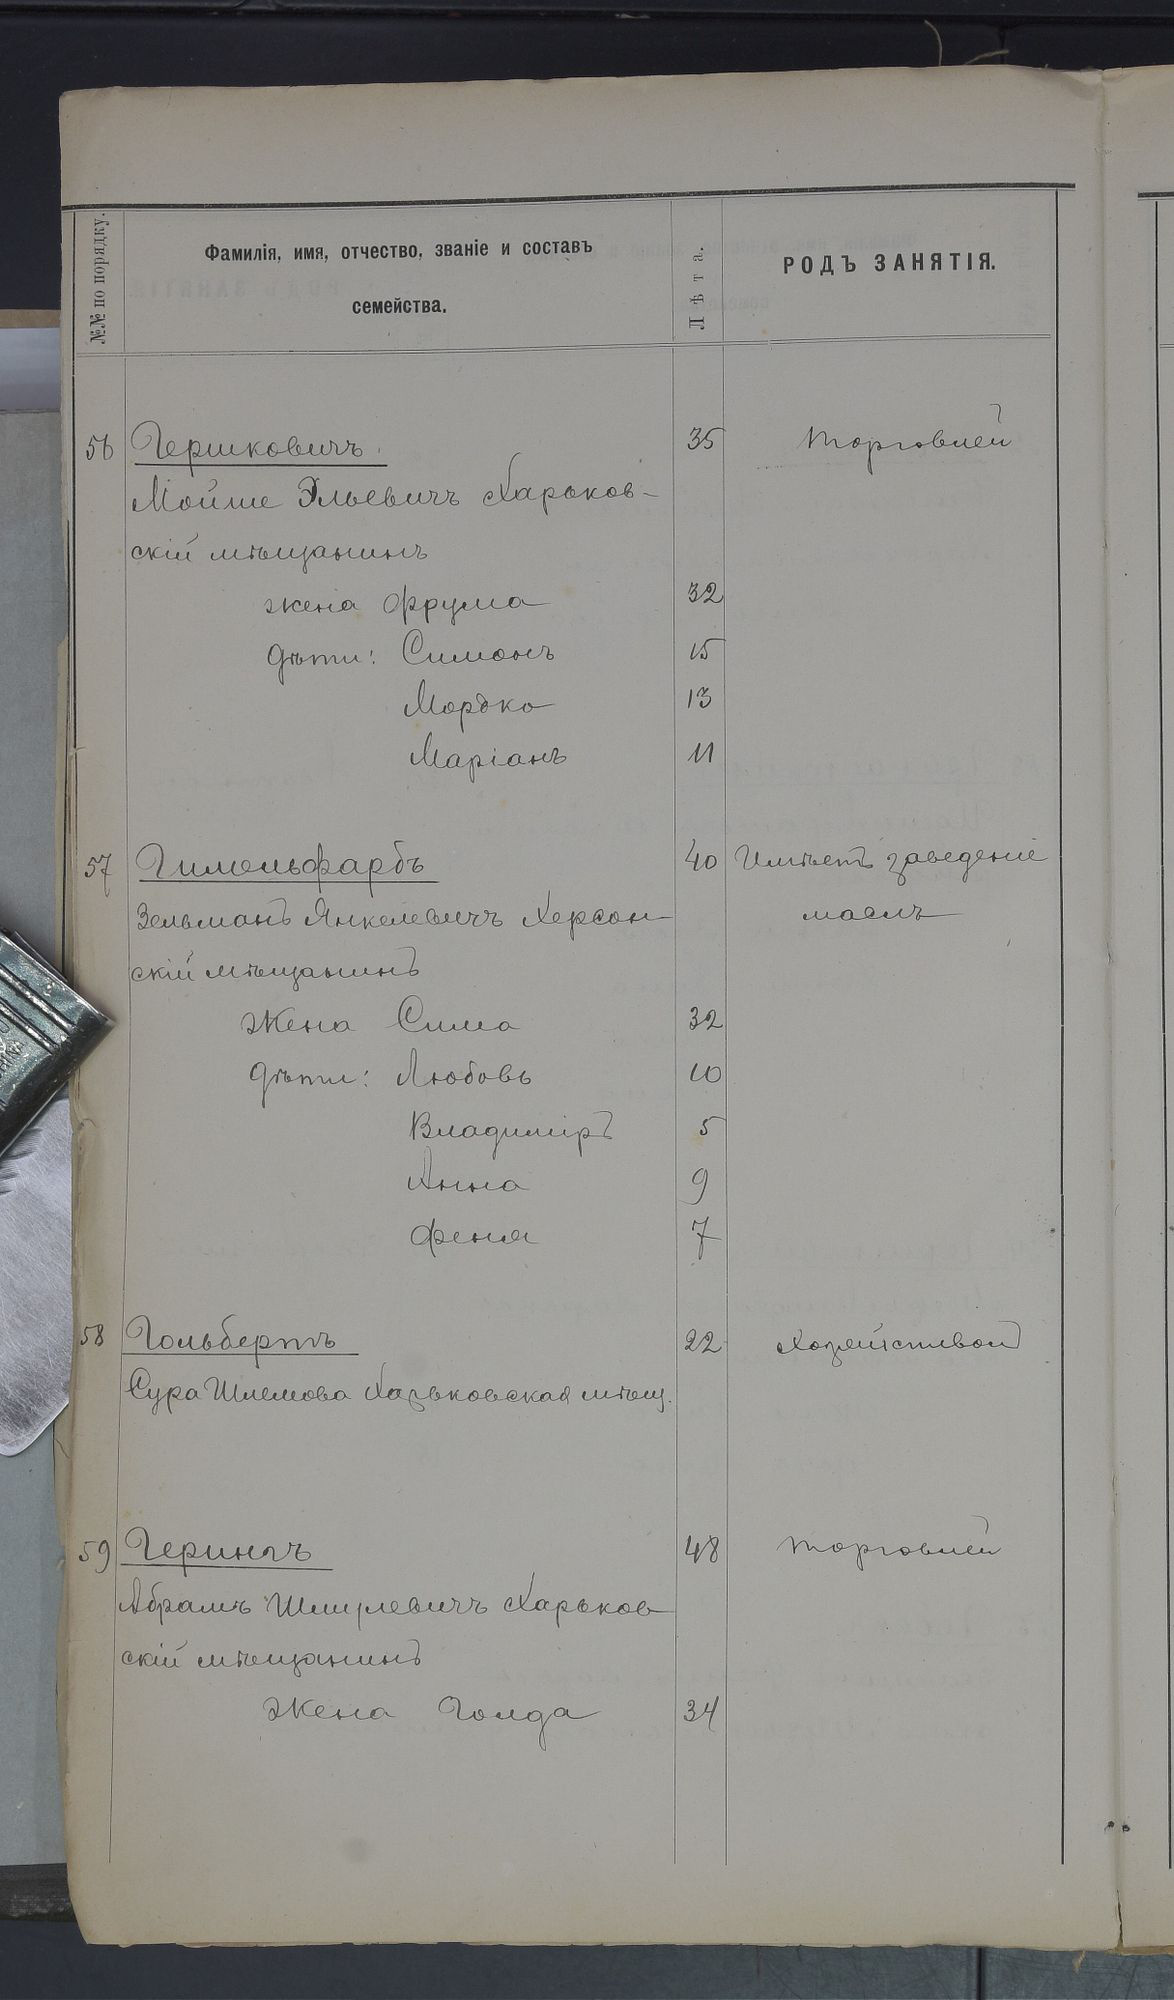 №№ по порядку.
Фамилія, имя, отчество, званіе и составъ
семейства.
Лѣта.
РОДЪ ЗАНЯТІЯ.
56 Гершковичъ 35 торговлей
Мойше Эльевичъ Харьков-
скій мѣщанинъ
жена Фрума 32
дѣти: Симонъ 15
Мордко 13
Маріанъ 11
57 Гимельфарбъ 40 Имѣетъ заведеніе
Зельманъ Янкелевичъ Херсон- маслъ
скій мѣщанинъ
жена Сима 32
дѣти: Любовь 10
Владиміръ 5
Анна 9
Феня 7
58 Гольбертъ 22 Хозяйствомъ
Сура Шлемова Харьковская мѣщ.
59 Герингъ 48 торговлей
Абрамъ Шмулевичъ Харьков-
скій мѣщанинъ
жена Голда 34